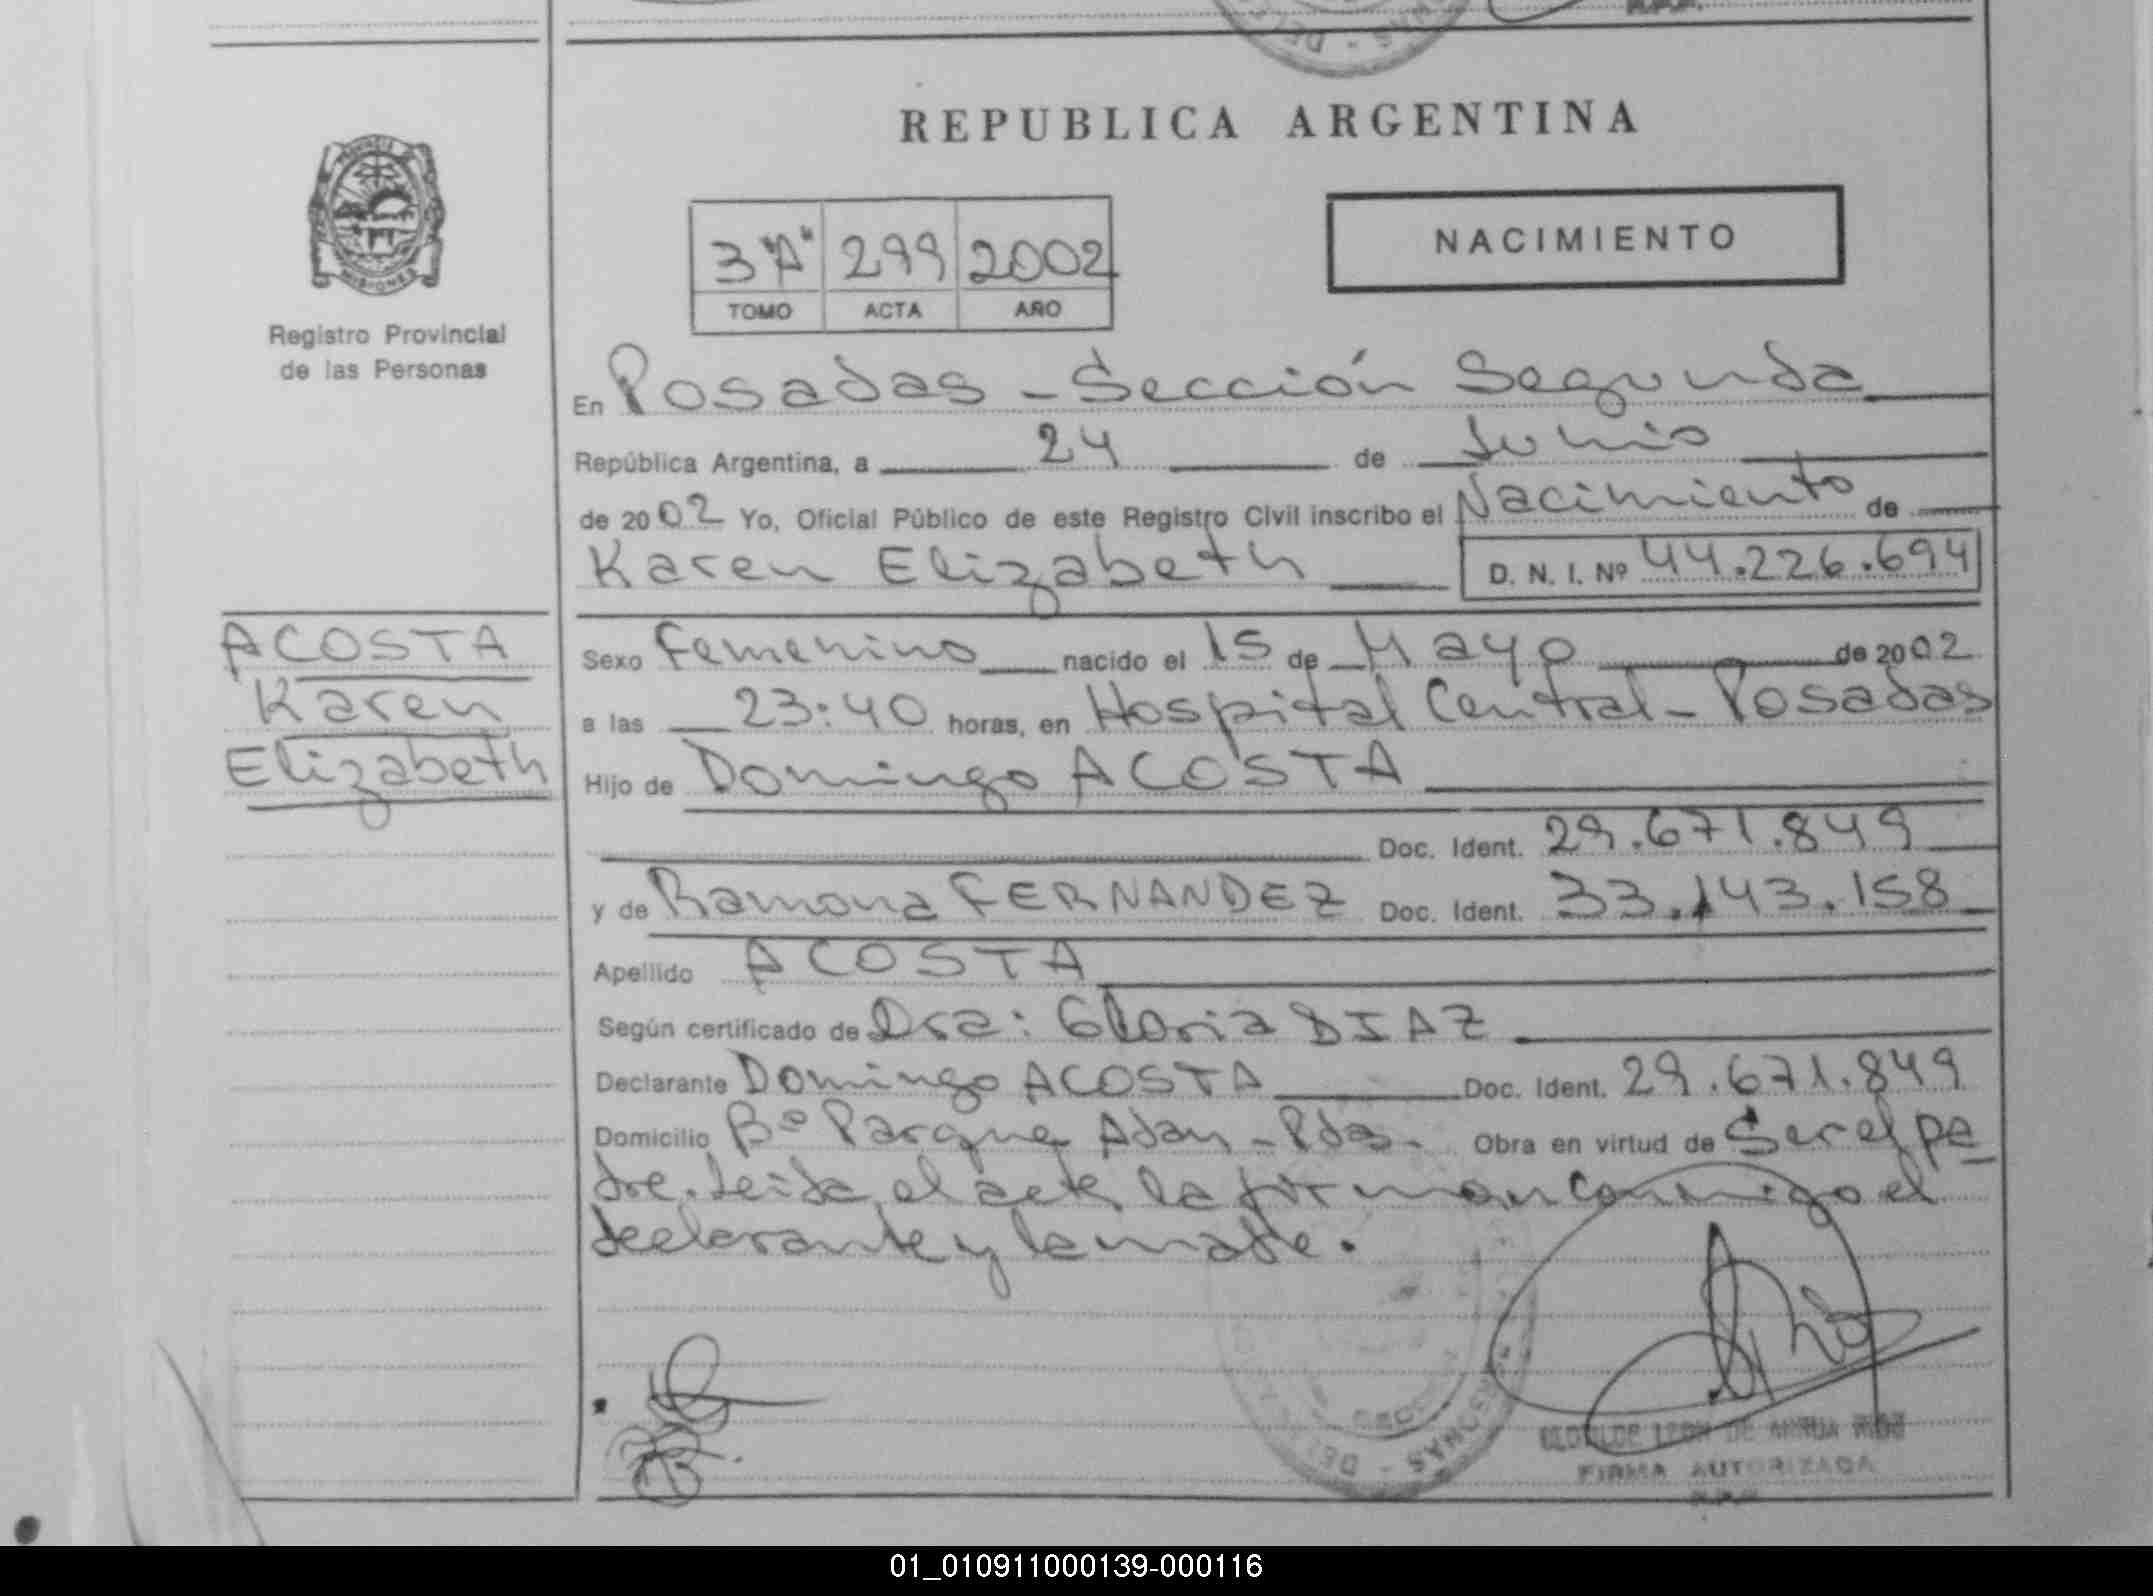 REPUBLICA ARGENTINA
NACIMIENTO
3 "A" 299 2002
TOMO ACTA AÑO
PROVINCIA DE
MISIONES
Registro Provincial
de las Personas
En Posadas - Sección Segunda
República Argentina, a 24 de Junio
de 2002 Yo, Oficial Público de este Registro Civil inscribo el Nacimiento de
Karen Elizabeth D. N. I. Nº 44.226.694
ACOSTA
Karen
Elizabeth
Sexo Femenino nacido el 15 de Mayo de 2002
a las 23:40 horas, en Hospital Central - Posadas
Hijo de Domingo ACOSTA
Doc. Ident. 29.671.849
y de Ramona FERNANDEZ Doc. Ident. 33.143.158
Apellido ACOSTA
Según certificado de Dra: Gloria DIAZ
Declarante Domingo ACOSTA Doc. Ident. 29.671.849
Domicilio Bº Parque Adam - Pdas. Obra en virtud de Ser el pa
dre. Leída el acta, la firman conmigo el
declarante y la madre.
FIRMA AUTORIZADA
01_010911000139-000116